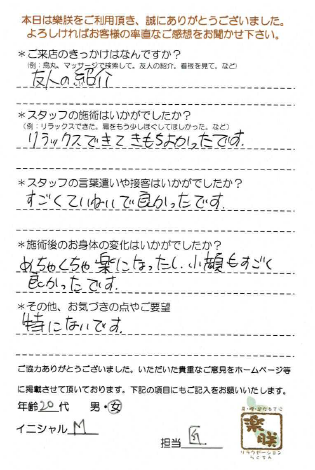 本日は楽朕をご利用頂き、誠にありがとうございました。
よろしければお客様の率直なご感想をお聞かせ下さい。
＊ご来店のきっかけはなんですか？
(例：烏丸、マッサージで検索して。友人の紹介。看板を見て。など)
友人の紹介
＊スタッフの施術はいかがでしたか？
(例：リラックスできた。肩をもう少しほぐしてほしかった。など)
リラックスできてきもちよかったです。
＊スタッフの言葉遣いや接客はいかがでしたか？
すごくていねいで良かったです。
＊施術後のお身体の変化はいかがでしたか？
めちゃくちゃ楽になったし、小顔もすごく
良かったです。
＊その他、お気づきの点やご要望
特にないです。
ご協力ありがとうございました。いただいた貴重なご意見をホームページ等
に掲載させて頂いております。下記の項目にもご記入をお願いいたします。
年齢20代 男・女
イニシャル M
担当
楽朕
リラクゼーション